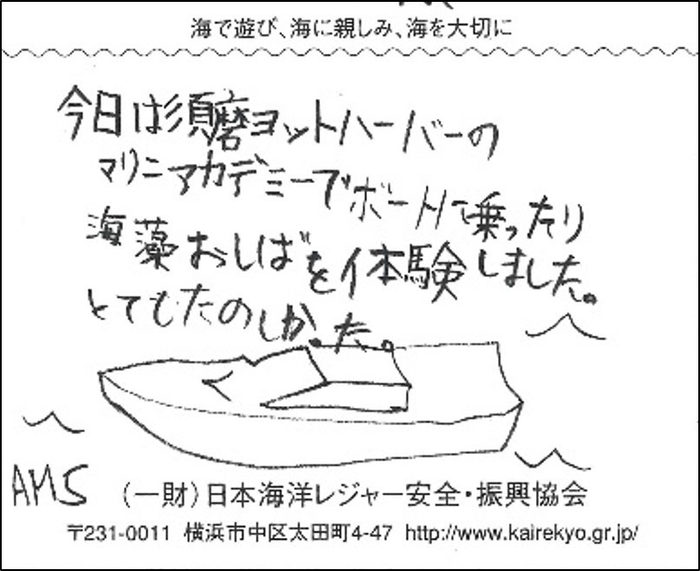 海で遊び、海に親しみ、海を大切に
今日は須磨ヨットハーバーの
マリンアカデミーでボートに乗ったり
海藻おしばを体験しました。
とてもたのしかった。
AMS （一財）日本海洋レジャー安全・振興協会
〒231-0011 横浜市中区太田町4-47 http://www.kairekyo.gr.jp/